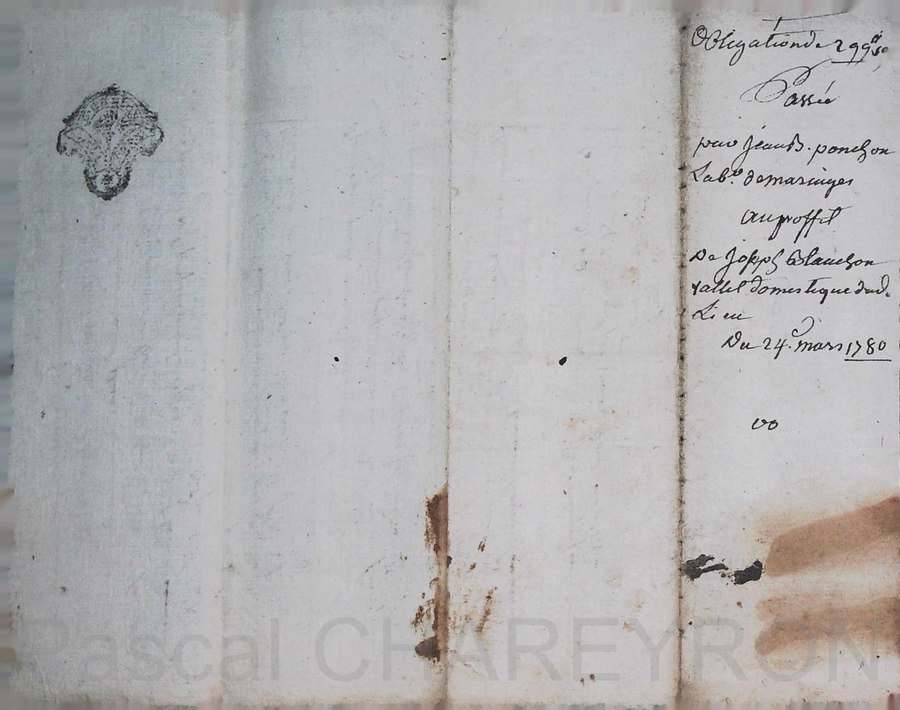 Obligation de 299ᵗᵗ
Passée
par jean B. ponchon
Labʳ. de maringes
au proffit
De Joseph Blanchon
vallet domestique dud.
Lieu
Du 24.ᵉ mars 1780
Pascal CHAREYRON